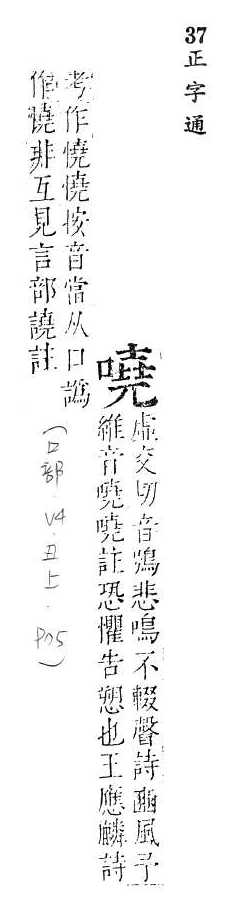 37正字通
嘵
虛交切音鴞悲鳴不輟聲詩豳風予
維音嘵嘵註恐懼告愬也王應麟詩
考作憢憢按音當从口譌
作憢非互見言部譊註
(口部.V4.丑上.P75)